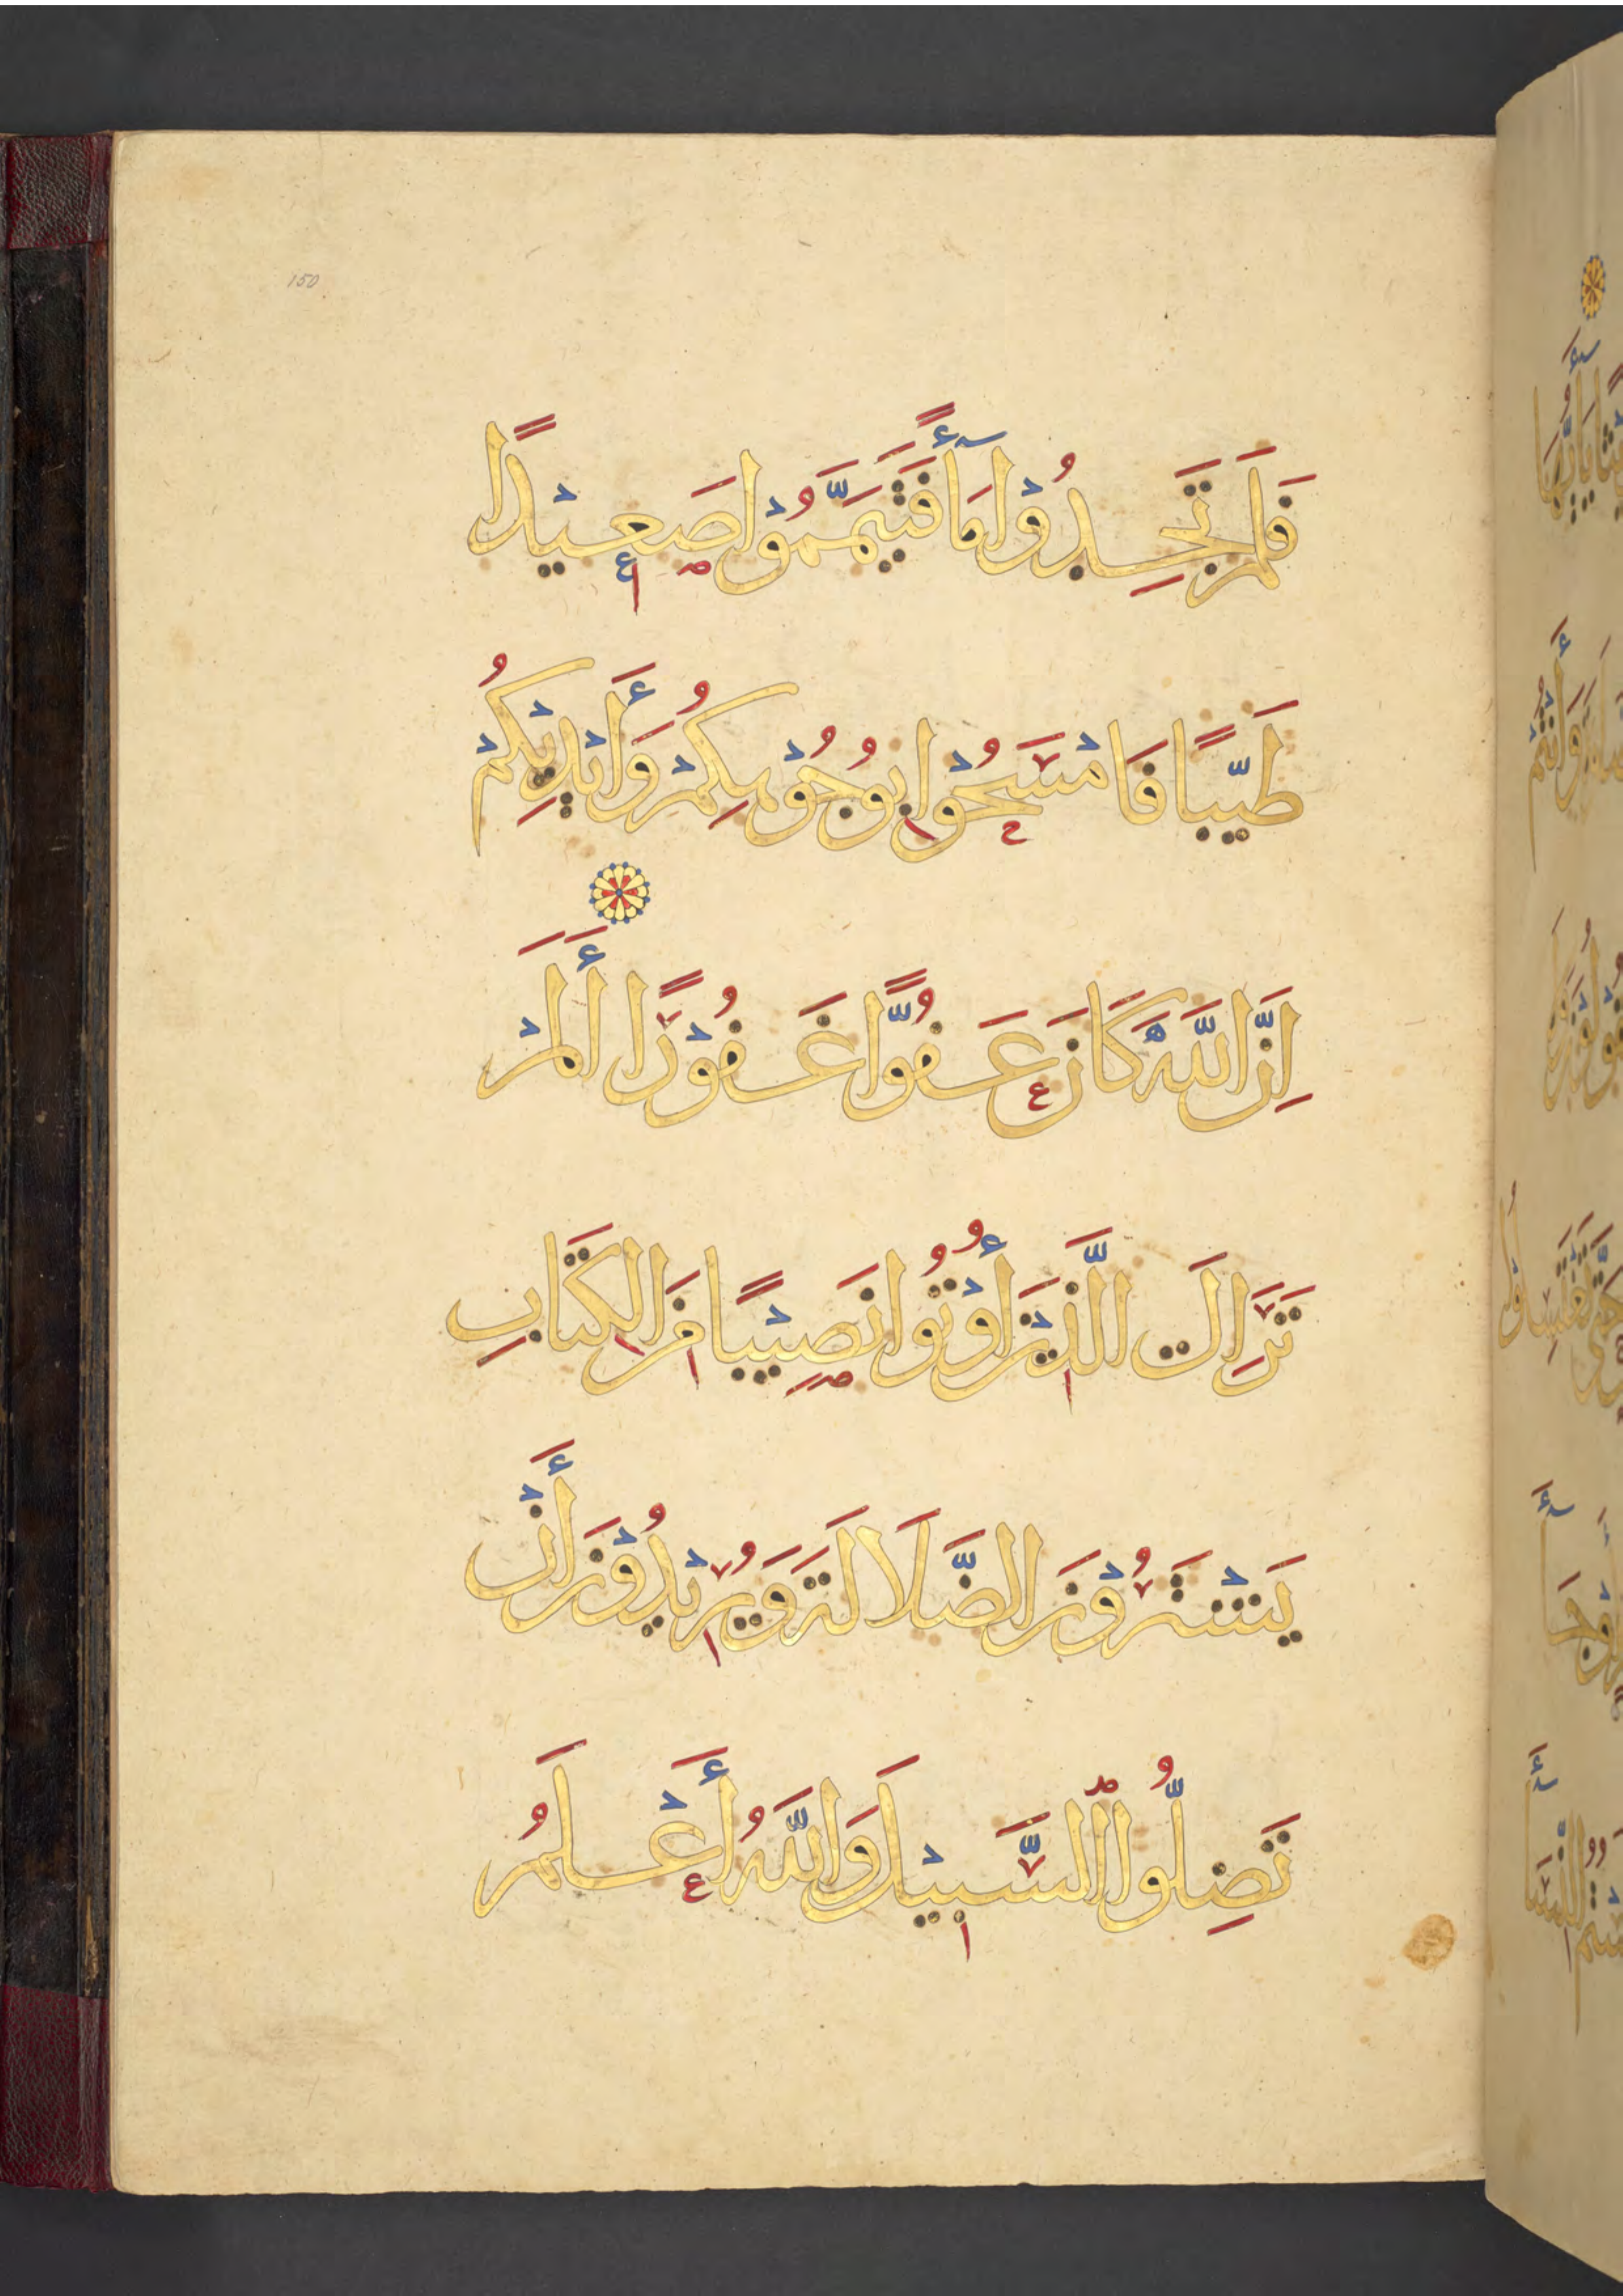 150
فَلَمْ تَجِدُوْا مَآءً فَتَيَمَّمُوْا صَعِيْدًا
طَيِّبًا فَامْسَحُوْا بِوُجُوْهِكُمْ وَأَيْدِيْكُمْ
اِنَّ اللَّهَ كَانَ عَفُوًّا غَفُوْرًا أَلَمْ
تَرَ اِلَى الَّذِيْنَ أُوْتُوا نَصِيْبًا مِنَ الْكِتَابِ
يَشْتَرُوْنَ الضَّلَالَةَ وَيُرِيْدُوْنَ أَنْ
تَضِلُّوا السَّبِيْلَ وَاللَّهُ أَعْلَمُ